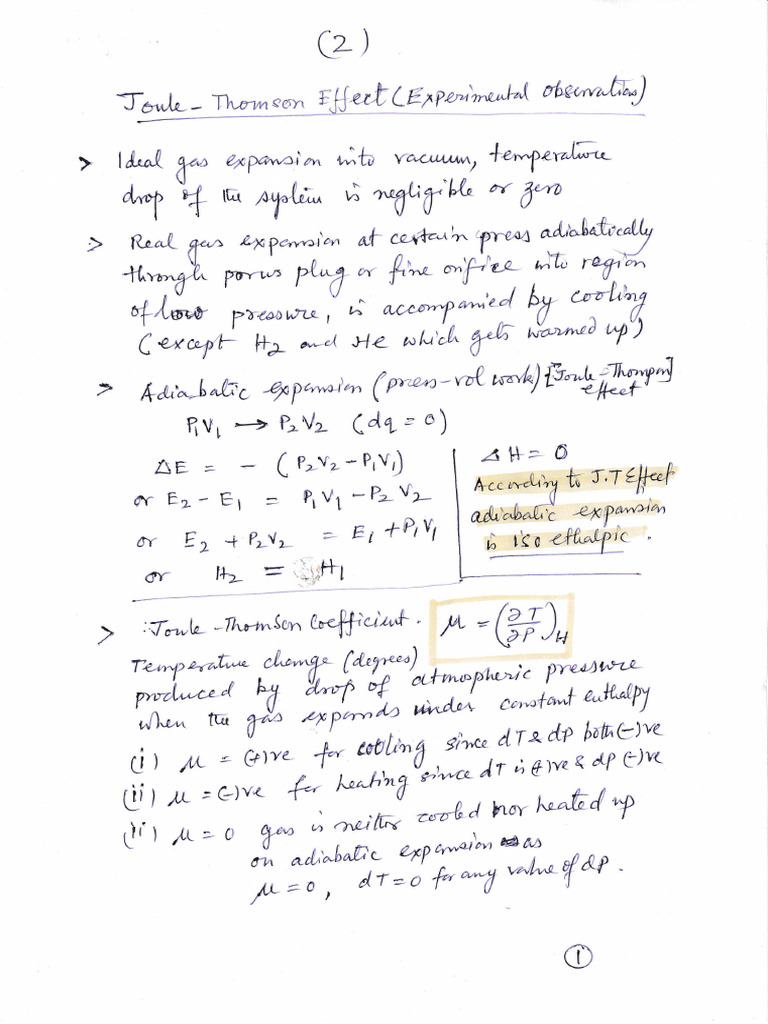 (2)
Joule - Thomson Effect (Experimental Observations)
> Ideal gas expansion into vacuum, temperature
drop of the system is negligible or zero
> Real gas expansion at certain press adiabatically
through porus plug or fine orifice into region
of low pressure, is accompanied by cooling
(except H2 and He which gets warmed up)
> Adiabatic expansion (press-vol work) [Joule-Thompson]
effect
P1V1 → P2V2 (dq = 0)
ΔE = - (P2V2 - P1V1)
or E2 - E1 = P1V1 - P2V2
or E2 + P2V2 = E1 + P1V1
or H2 = H1
ΔH = 0
According to J.T Effect
adiabatic expansion
is iso ethalpic.
> Joule - Thomson Coefficient. μ = (∂T/∂P)H
Temperature change (degrees)
produced by drop of atmospheric pressure
when the gas expands under constant enthalpy
(i) μ = (+)ve for cooling since dT & dP both (-)ve
(ii) μ = (-)ve for heating since dT is (+)ve & dp (-)ve
(ii) μ = 0 gas is neither cooled nor heated up
on adiabatic expansion as
μ = 0, dT = 0 for any value of dP.
1